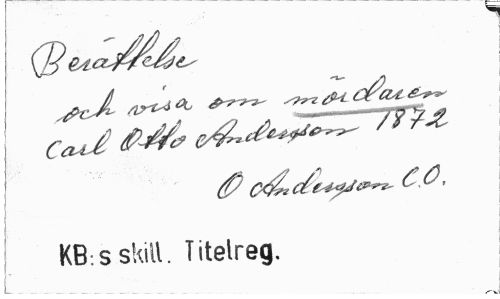 Berättelse
och visa om mördaren
Carl Otto Andersson 1872
O Andersson C.O.
KB:s skill. Titelreg.